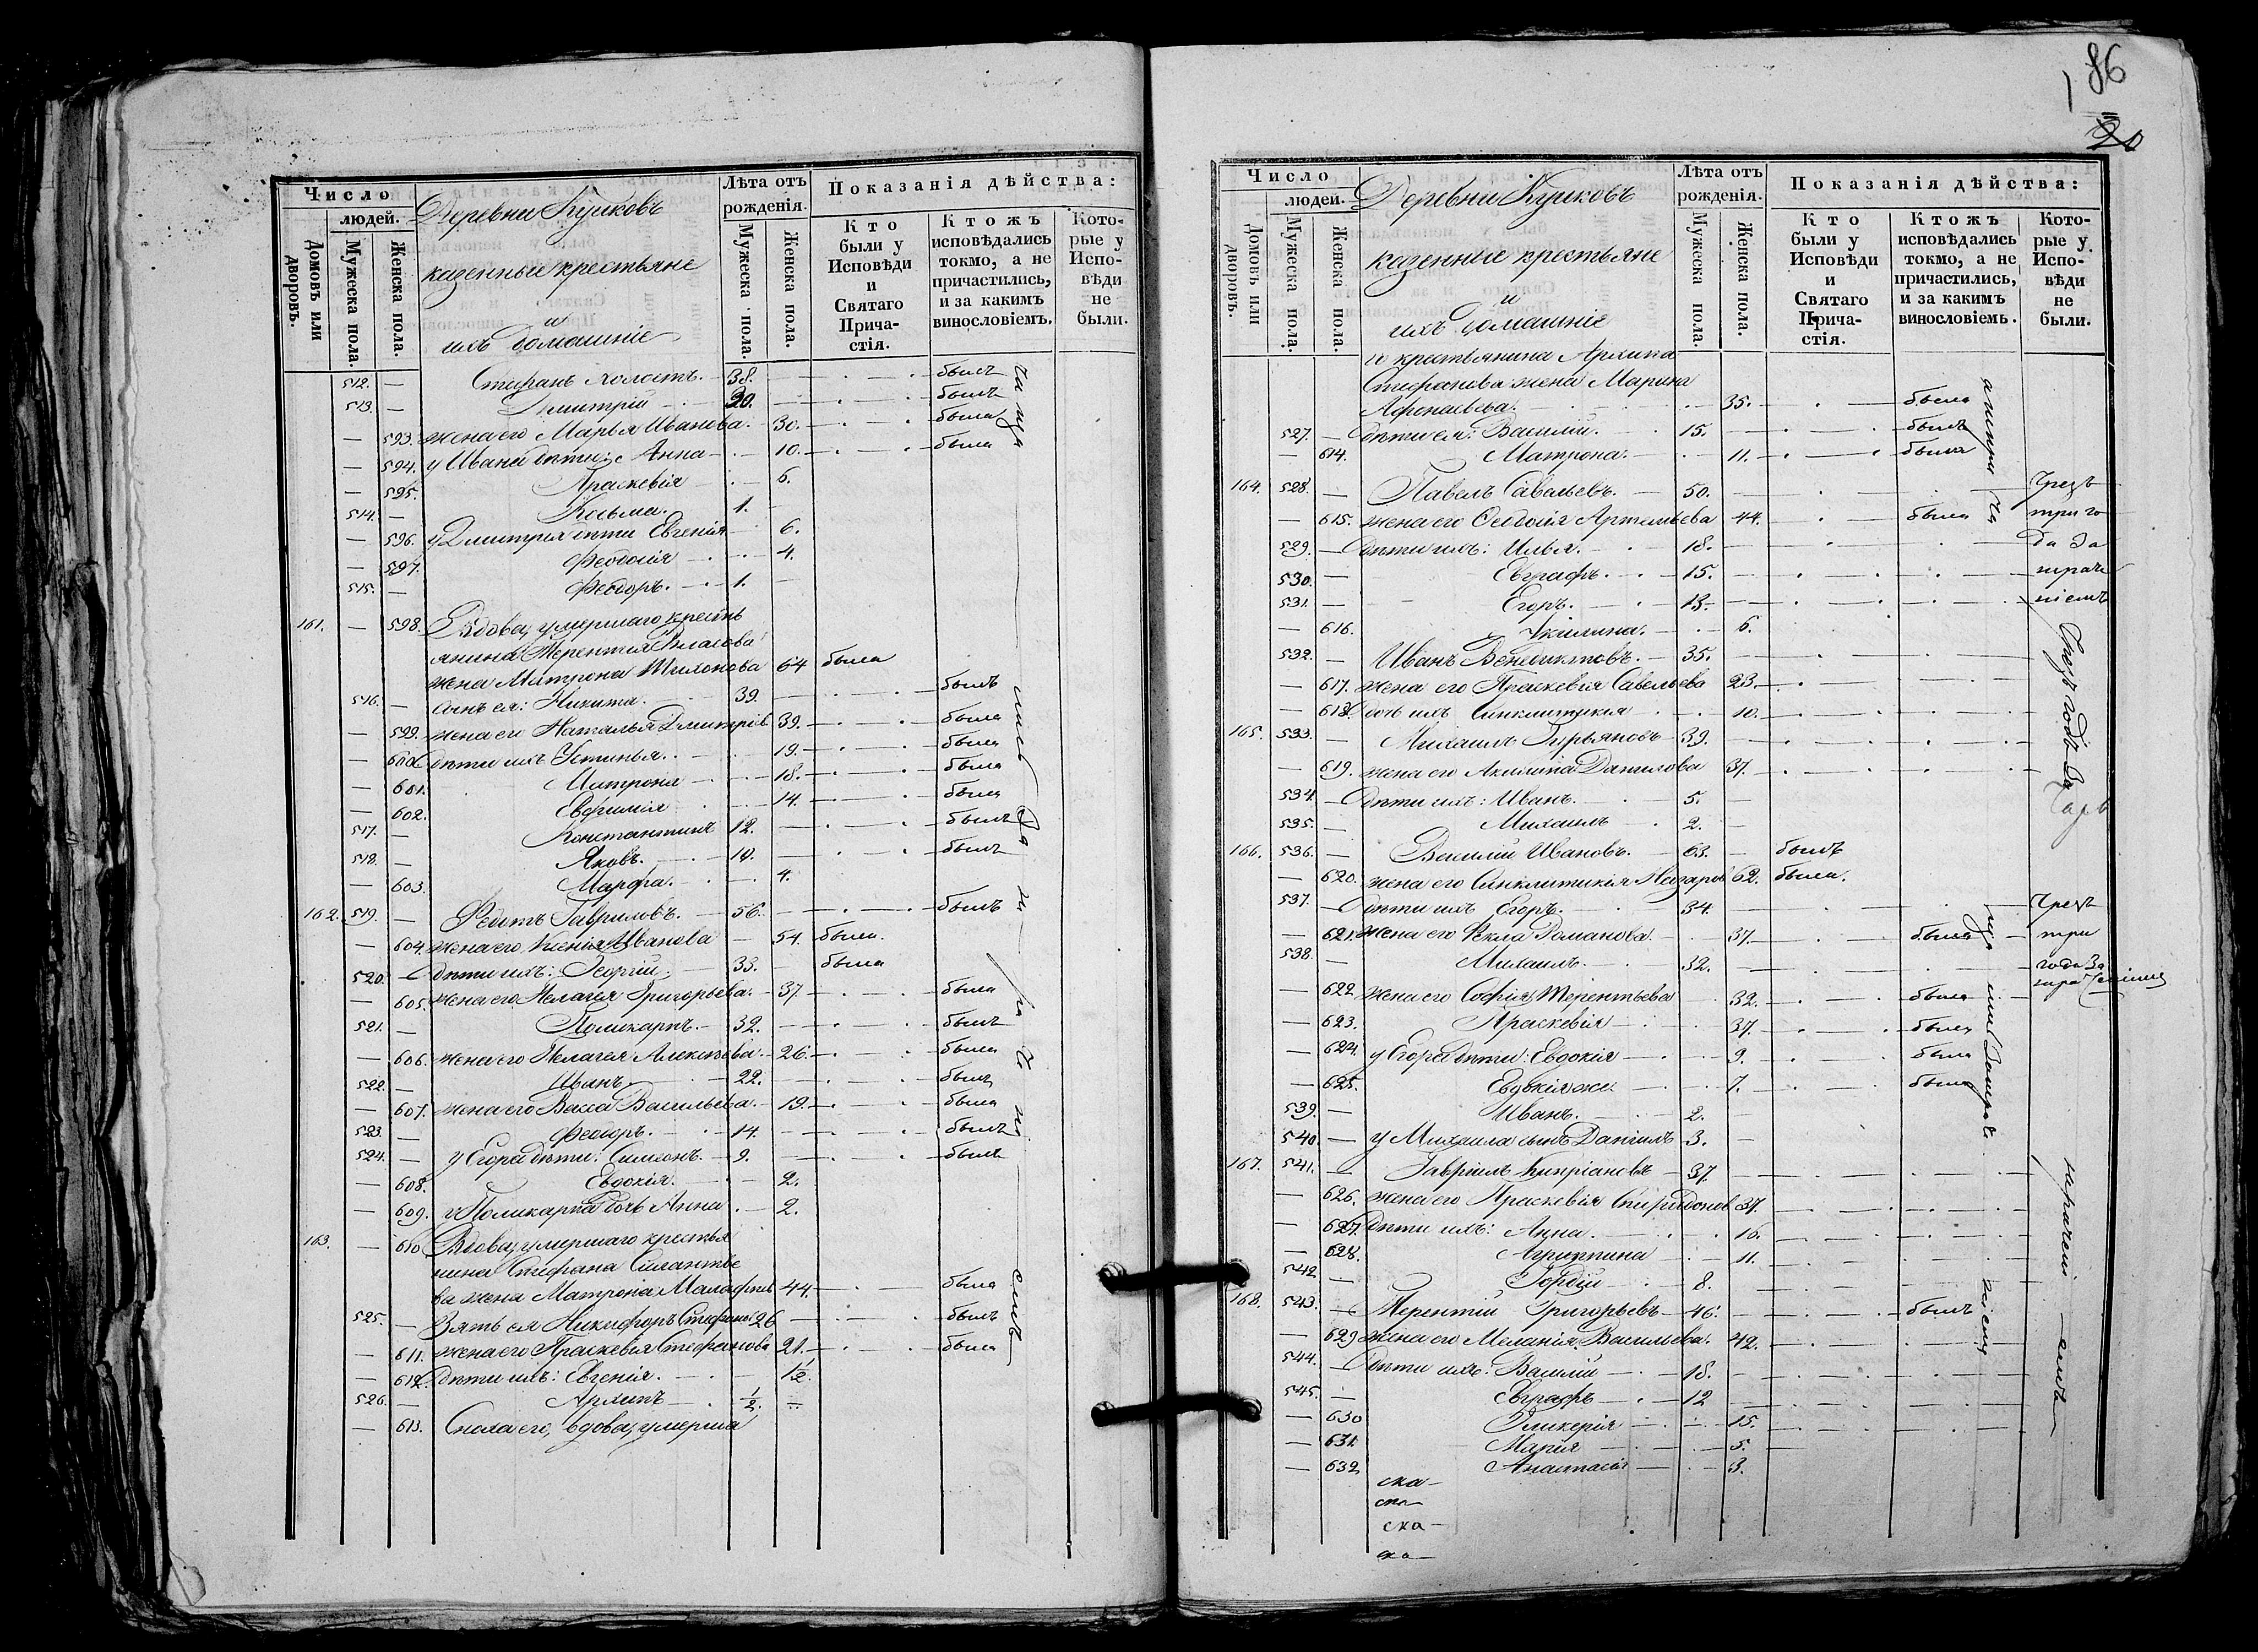 86
20
Число
людей.
Домовъ или дворовъ.
Мужеска пола.
Женска пола.
Деревни Куликовъ
казенные крестьяне
и
ихъ домашніе
Лѣта отъ рожденія.
Мужеска пола.
Женска пола.
Показанія дѣйства:
Кто были у Исповѣди и Святаго Прича- стія.
Кто жъ исповѣдались токмо, а не причастились, и за какимъ винословіемъ.
Кото- рые у Испо- вѣди не были.
512. — Стефанъ холостъ. 38. — былъ
513. — Димитрій 30. — былъ
— 593. жена его Марья Иванова. 30. — была
— 594. у Ивана дѣти: Анна 10. — была
— 595. Праскевія 6.
514. — Козьма. 1. —
— 596. у Димитрія дѣти Евгенія 6.
— 597. Феодосія 4.
515. — Феодоръ. 1. —
161. — 598. Вдова, умершаго кресть
янина Терентія Власова
жена Матрона 64 была
516. — сынъ ея: Никита. 39. — былъ
— 599. жена его Наталья Димитріев. 39. — была
— 600. дѣти ихъ Устинья. 19. — была
— 601. Матрона 18. — была
— 602. Евфимія 14. — была
517. — Константинъ 12. — былъ
518. — Яковъ. 10. — былъ
— 603. Марфа. 4.
162. 519. — Гавриловъ. 56. — былъ
— 604. жена его Ксенія Иванова 54. была.
520. — дѣти ихъ: Георгій. 33. — была
— 605. жена его Пелагея Григорьева. 37. — была
521. — Поликарпъ. 32. — былъ
— 606. жена его Пелагея Алексѣева. 26. — была
522. — Иванъ 22. — былъ
— 607. жена его Васса Васильева. 19. — была
523. — Феодоръ. 14. — былъ
524. — у Егора дѣти: Симеонъ. 9. — былъ
— 608. Евдокія. 2.
— 609. у Поликарпа дочь Анна 2.
163. — 610 Вдова, умершаго крестья
нина Стефана Силантье
ва жена Матрона Малафѣев 44. — была
525. — Зять ея Никифоръ Стефанов 26 — былъ
— 611. жена его Праскевія Стефанова 21. — была
— 612. дѣти ихъ: Евгенія. 1½.
526. — Архипъ ½. —
— 613. Сноха его, вдова, умерша
Число
людей.
Домовъ или дворовъ.
Мужеска пола.
Женска пола.
Деревни Куликовъ
казенные крестьяне
и
ихъ домашніе
Лѣта отъ рожденія.
Мужеска пола.
Женска пола.
Показанія дѣйства:
Кто были у Исповѣди и Святаго Прича- стія.
Кто жъ исповѣдались токмо, а не причастились, и за какимъ винословіемъ.
Кото- рые у Испо- вѣди не были.
го крестьянина Архипа
Стефанова жена Марина
35. — была
527. — дѣти ея: Василій. 15. — былъ
— 614. Матрона. 11. — была
164. 528. — Павелъ Савельевъ. 50. — Чрезъ
— 615. жена его Феодосія Артемьева 44. — была три го
529. — дѣти ихъ: Илья. 18. — да за
530. — Евграфъ. 15. — нраче
531. — Егоръ. 13. — ніемъ
— 616. Акилина. 6.
532. — Иванъ Венедиктовъ. 35. —
— 617. жена его Праскевія Савельева 23. —
— 618. дочь ихъ Синклитикія 10. —
165. 533. — Михаилъ Гурьяновъ 39. —
— 619. жена его Акилина Данилова 37. —
534. — дѣти ихъ: Иванъ. 5. —
535. — Михаилъ 2. —
166. 536. — Василій Ивановъ. 63. — былъ
— 620. жена его Синклитикія Назаров 62. была.
537. — дѣти ихъ Егоръ. 34. — Чрезъ
— 621. жена его Фекла Романова. 37. — была — три
538. — Михаилъ. 32. — года за
— 622. жена его Софія Терентьева 32. — была
— 623. Праскевія 37. — была
— 624. у Егора дѣти: Евдокія 9. — была
— 625. Евдокія же. 7. — была
539. — Иванъ. 2. —
540. — у Михаила сынъ Даніилъ 3. —
167. 541. — Гавріилъ Кипріановъ 37. —
— 626. жена его Праскевія Спиридонов 37. —
— 627. дѣти ихъ: Анна. 16. —
— 628. Агриппина 11. —
542. — Гордій 8. —
168. 543. — Терентій Григорьевъ 46. — былъ
— 629 жена его Меланія Васильева. 42. —
544. — дѣти ихъ: Василій 18. —
545. — Евграфъ 12 —
— 630 Гликерія 15. —
— 631. Марія 5. —
— 632 Анастасія 3.